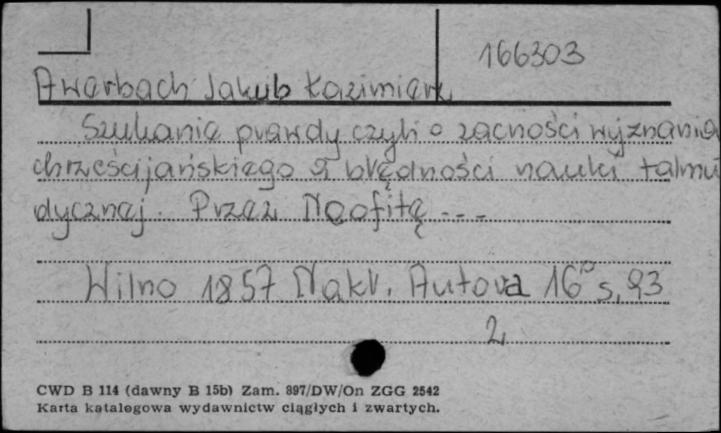 166303
Awerbach Jakub Kazimierz
Szukanie prawdy czyli o zacności wyznania
chrześcijańskiego a błędności nauki talmu
dycznej. Przez Neofitę ---
Wilno 1857 Nakł. Autora 16° s. 93
2
CWD B 114 (dawny B 15b) Zam. 897/DW/On ZGG 2542
Karta katalogowa wydawnictw ciągłych i zwartych.